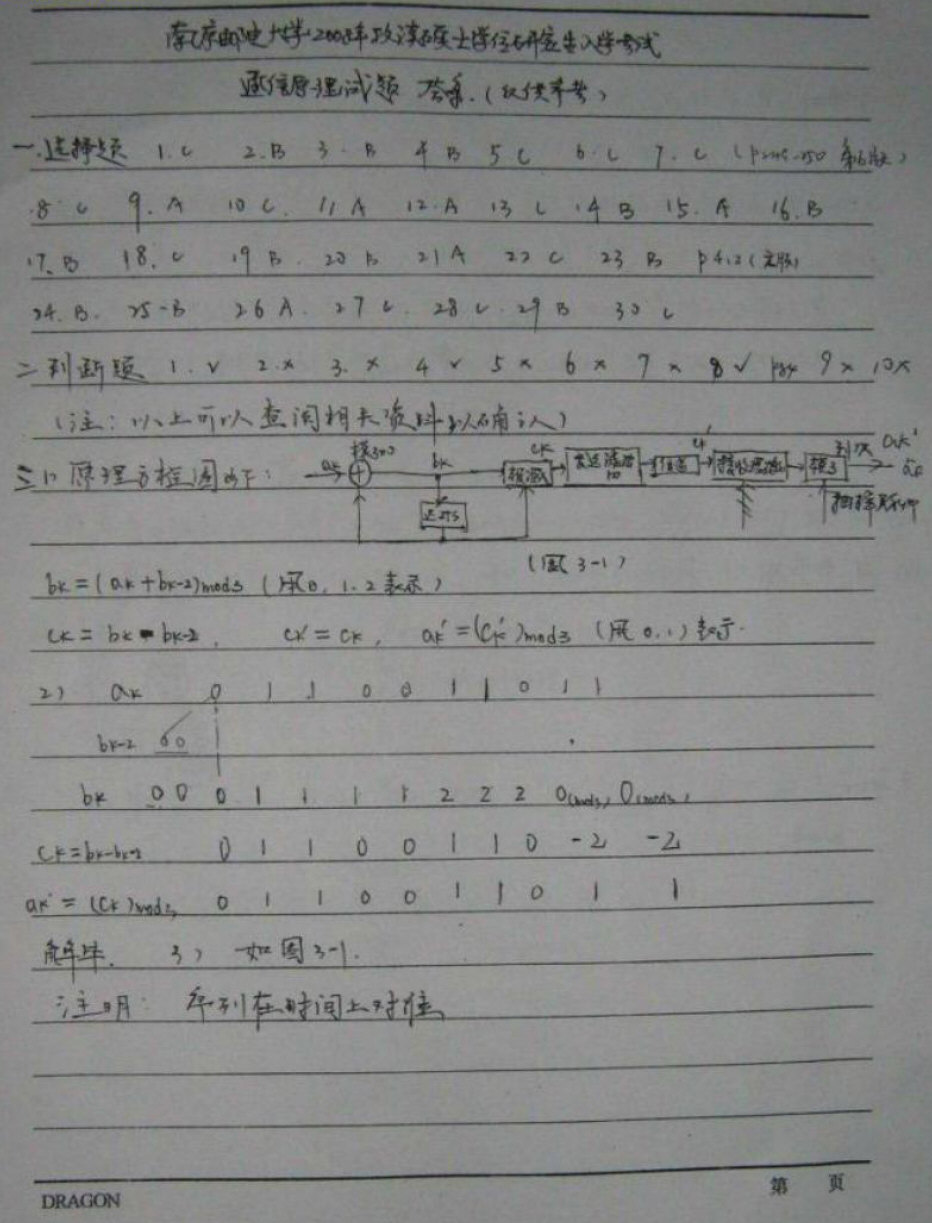 南京邮电大学2008年攻读硕士学位研究生入学考试
通信原理试题 答案.(仅供参考)
一.选择题 1.C 2.B 3.B 4 B 5 C 6.C 7.C
8 C 9.A 10 C. 11 A 12.A 13 C 14 B 15.A 16.B
17.B 18.C 19 B. 20 B 21 A 22 C 23 B
24.B. 25-B 26 A. 27 C. 28 C. 29 B 30 C
二判断题 1.√ 2.× 3.× 4 √ 5 × 6 × 7 × 8 √ 9 × 10×
(注:以上可以查阅相关资料以确认)
三1) 原理方框图如下: ak 模3加 bk 相减 ck 发送滤波 信道 ck' 接收滤波 模3 判决 ak'
延时 抽样脉冲
(图3-1)
bk=(ak+bk-2)mod3 (用0,1.2表示)
ck=bk-bk-2, ck'=ck, ak'=(ck')mod3 (用0.1)表示.
2) ak 0 1 1 0 0 1 1 0 1 1
bk-2 00
bk 0 0 0 1 1 1 1 2 2 2 0(mod3) 0(mod3)
ck=bk-bk-2 0 1 1 0 0 1 1 0 -2 -2
ak'=(ck)mod3 0 1 1 0 0 1 1 0 1 1
解毕. 3) 如图3-1.
注明: 序列在时间上对准
DRAGON
第 页